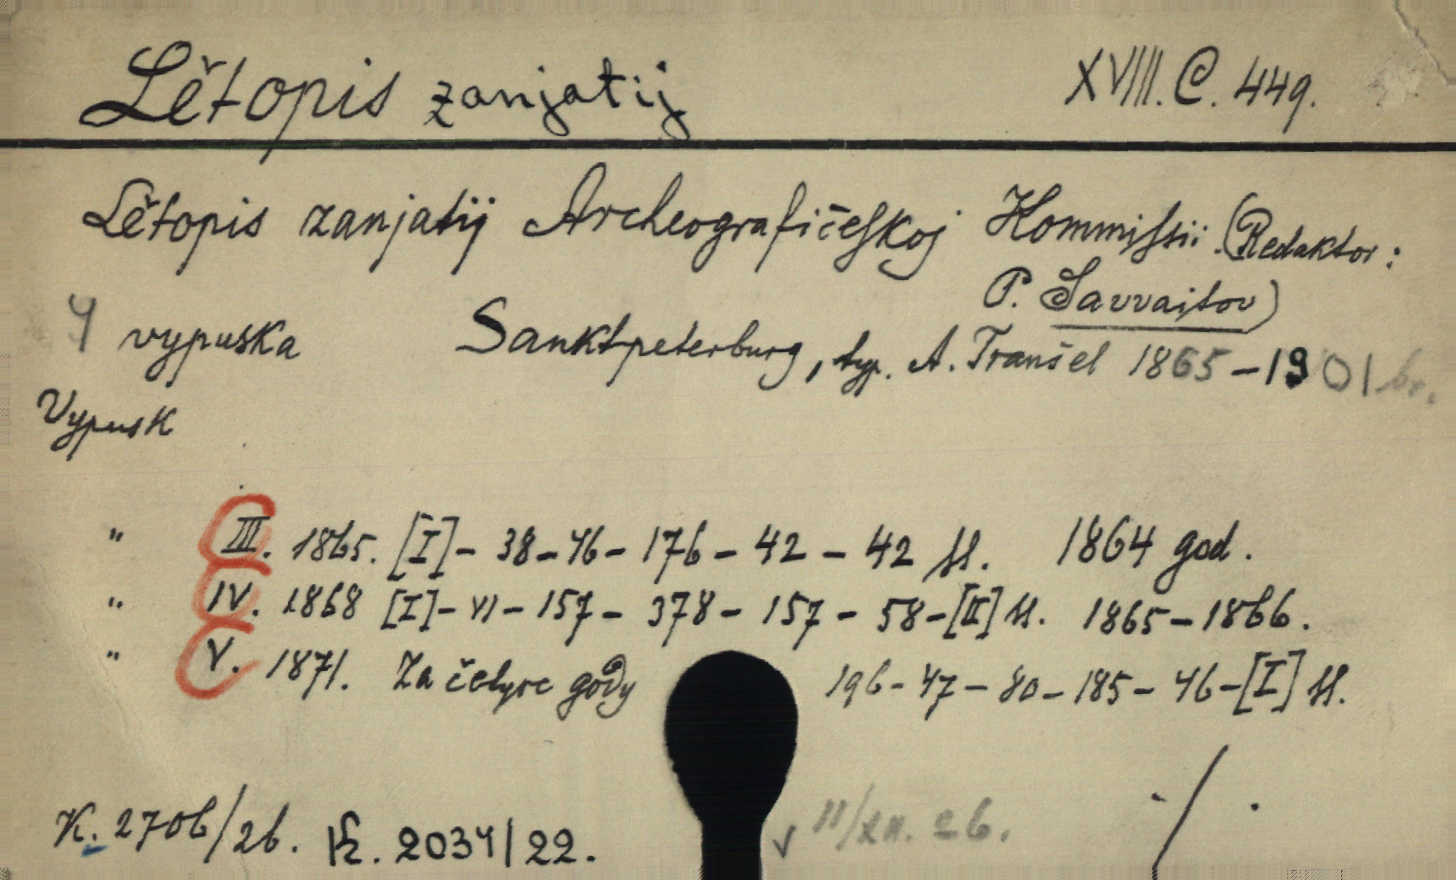 Lětopis zanjatij XVIII. C. 449.
Lětopis zanjatij Archeografičeskoj Kommissii. (Redaktor:
P. Savvaitov)
4 vypuska Sanktpeterburg, typ. A. Tranšel 1865-1901
Vypusk
" III. 1865. [I]- 38-46- 176- 42 - 42 ss. 1864 god.
" IV. 1868 [I]- VI- 157- 378- 157- 58-[II] ss. 1865-1866.
" V. 1871. Za četyre gody 196- 47- 80- 185- 46-[I] ss.
K. 2706/26. K. 2034/22. √ 11/XII. 26. ·/.